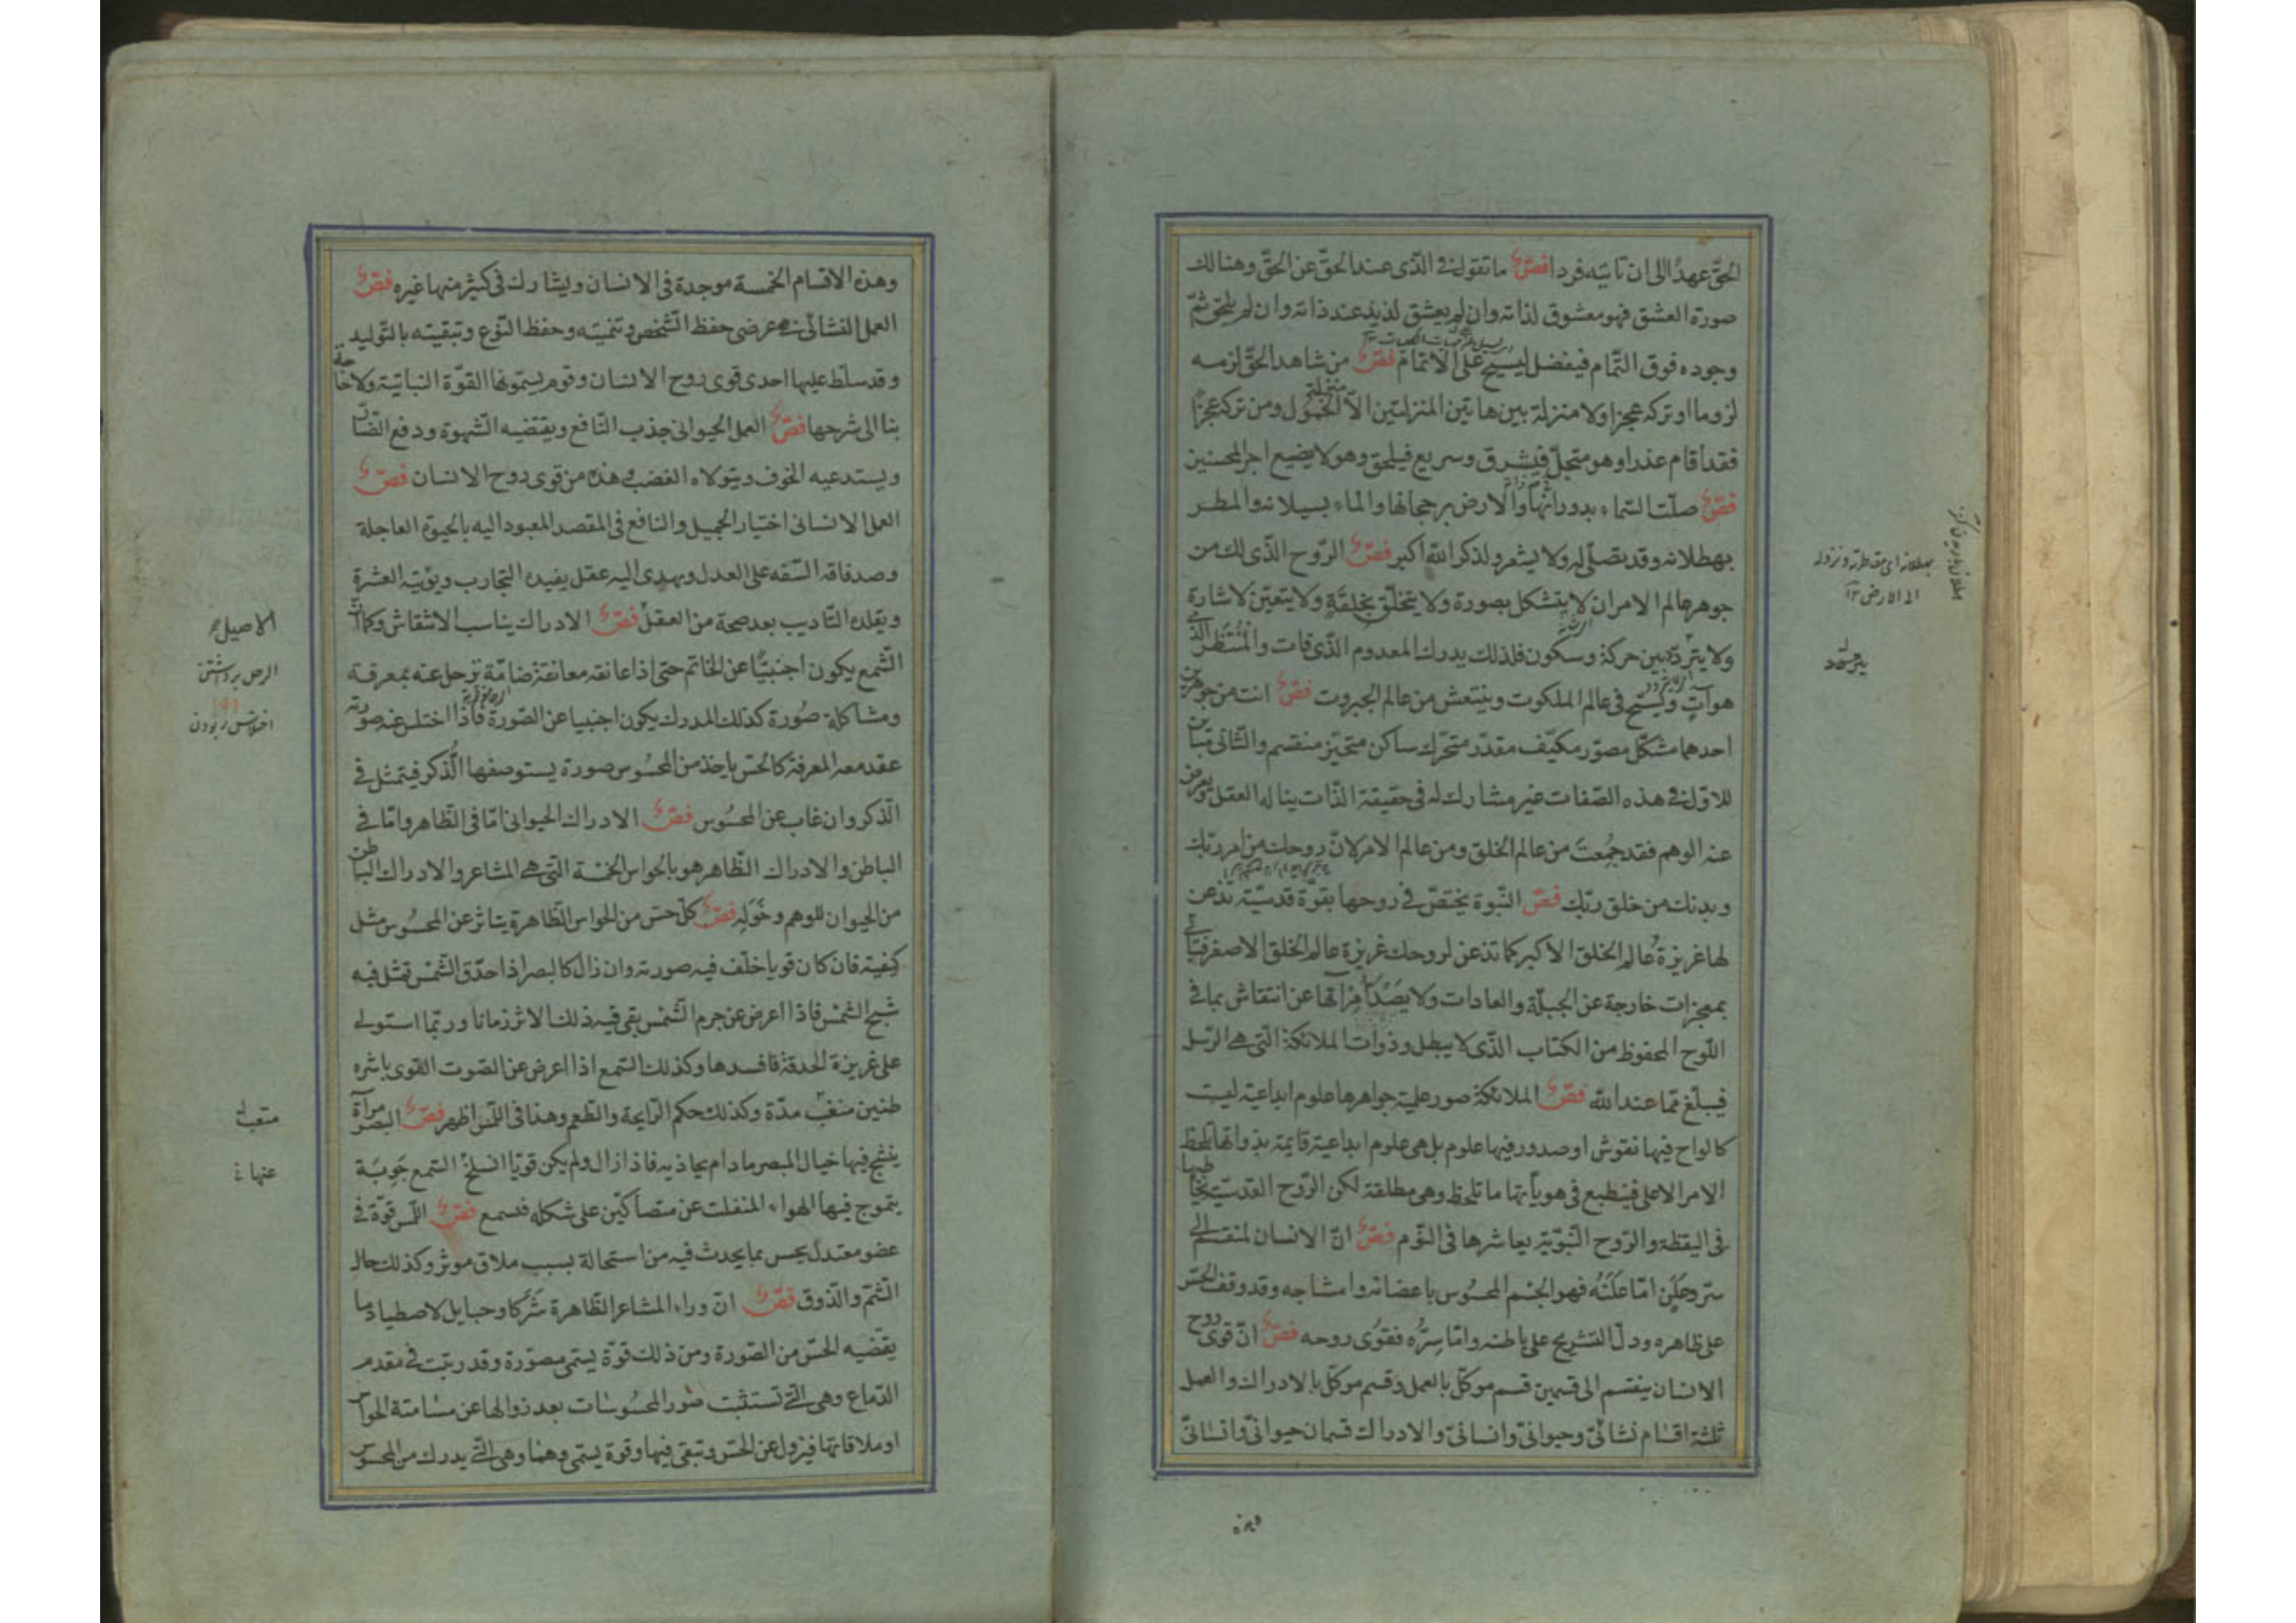 الحقّ عهدًا الى ان تاتيه فردا فصّ ما تقول فى الّذى عند الحقّ عن الحقّ وهنالك
صورة العشق فهو معشوق لذاته وان لم يعشق لذيذ عند ذاته وان لم يلحق ثمّ
وجوده فوق التّمام فيفضل ليسيح على الاتمام فصّ من شاهد الحقّ لزمه
لزوما او تركه عجزا ولا منزلة بين هاتين المنزلتين الّا منزلة الخمول ومن تركه عجزًا
فقد أقام عذرا وهو متجلّ فيشرق وسريع فيلحق وهو لا يضيع اجر المحسنين
فصّ صلّت السّماء بدورانها والارض برجحانها والماء بسيلانه والمطر
بهطلانه وقد يصلّى له ولا يشعر ولذكر الله اكبر فصّ الرّوح الّذى لك من
جوهر عالم الامر ان لا يتشكل بصورة ولا يتخلّق بخلقة ولا يتعيّن لاشارة
ولا يتردّد بين حركة وسكون فلذلك يدرك المعدوم الّذى فات والمنتظر الّذى
هو آتٍ ويسبح فى عالم الملكوت وينتعش من عالم الجبروت فصّ انت من جوهرين
احدهما مشكّل مصوّر مكيّف مقدّر متحرّك ساكن متحيّز منقسم والثّانى مباين
للاوّل فى هذه الصّفات غير مشارك له فى حقيقة الذّات يناله العقل ويعرض
عنه الوهم فقد جُمعتَ من عالم الخلق ومن عالم الامر لانّ روحك من امر ربّك
وبدنك من خلق ربّك فصّ النّبوة يختصّ فى روحها بقوّة قدسيّة تذعن
لها غريزةُ عالم الخلق الأكبر كما تذعن لروحك غريزة عالم الخلق الاصغر فتأتى
بمعجزات خارجة عن الجبلّة والعادات ولا يصدأ مرآتها عن انتقاش بما فى
اللّوح المحفوظ من الكتاب الّذى لا يبطل وذوات الملائكة الّتى هى الرّسل
فيبلّغ ممّا عند الله فصّ الملائكة صور علمية جواهرها علوم ابداعيّة ليست
كالواح فيها نقوش او صدور فيها علوم بل هى علوم ابداعية قايمة بذواتها تلحظ
الامر الاعلى فينطبع فى هويأتها ما تلحظ وهى مطلقة لكن الرّوح القدسيّة تخاطبها
فى اليقظة والرّوح النّبويّة يعاشرها فى النّوم فصّ انّ الانسان لمنقسم الى
سرّ وعلن امّا علنه فهو الجسم المحسُوس باعضائه وامشاجه وقد وقف الحسّ
على ظاهره ودلّ التشريح على باطنه وامّا سِرُّه فقوى روحه فصّ انّ قوى روح
الانسان ينقسم الى قسمين قسم موكّل بالعمل وقسم موكّل بالادراك والعمل
ثلثة اقسام نشائىّ وحيوانىّ وانسانىّ والادراك قسمان حيوانىّ وانسانىّ
وهذه
بهطلانه اى مقاطرته ونزوله
الى الارض ١٢
وهذه الاقسام الخمسة موجدة فى الانسان ويشارك فى كثير منها غيره فصّ
العمل النشائى فى عرضى حفظ الشّخص وتنميته وحفظ النّوع وتبقيته بالتّوليد
وقد سلّط عليها احدى قوى روح الانسان وقوم يسمّونها القوّة النباتيّة ولا حاجة
بنا الى شرحها فصّ العمل الحيوانى جذب النّافع ويقتضيه الشّهوة ودفع الضّارّ
ويستدعيه الخوف ويتولاه الغضب وهذه من قوى روح الانسان فصّ
العمل الانسانى اختيار الجميل والنافع فى المقصد المعبود اليه بالحيوة العاجلة
وصد فاقة السّفه على العدل ويهدى اليه عقل يفيده التجارب ويؤتيه العشرة
ويقلده التّاديب بعد صحة من العقل فصّ الادراك يناسب الانتقاش وكما انّ
الشّمع يكون اجنبيًّا عن الخاتم حتى اذا عانقه معانقة ضامّة نزحل عنه بمعرفة
ومشاكلة صُورة كذلك المدرك يكون اجنبيا عن الصّورة فاذا اختلس عنه صورته
عقد معه المعرفة كالحسّ ياخذ من المحسُوس صورة يستوصفها الذّكر فيتمثل فى
الذّكر وان غاب عن المحسُوس فصّ الادراك الحيوانى امّا فى الظّاهر وامّا فى
الباطن والادراك الظّاهر هو بالحواس الخمسة الّتى هى المشاعر والادراك الباطن
من الحيوان للوهم وخَوَلِه فصّ كلّ حسّ من الحواس الظّاهرة يتاثر عن المحسُوس مثل
كيفيته فان كان قويا خلّف فيه صورته وان زال كالبصر اذا حدّق الشّمس تمثل فيه
شبح الشّمس فاذا اعرض عن جرم الشّمس بقى فيه ذلك الاثر زمانا وربّما استولى
على غريزة الحدقة فافسدها وكذلك السّمع اذا اعرض عن الصّوت القوى باشره
طنين متعب مدّة وكذلك حكم الرّايحة والطّعم وهذا فى اللّمس اظهر فصّ البصر مرآة
يتشبح فيها خيال المبصر ما دام يحاذيه فاذا زال ولم يكن قويّا انسلخ السّمع جَوبَة
يتموج فيها الهواء المنفلت عن متصاكّين على شكله فتسمع فصّ اللّمس قوّة فى
عضو معتدل يحس بما يحدث فيه من استحالة بسبب ملاق موثر وكذلك حال
الشّمّ والذّوق فصّ انّ وراء المشاعر الظّاهرة شَرَكًا وحبايل لاصطياد ما
يقتضيه الحسّ من الصّورة ومن ذلك قوّة يسمّى مصوّرة وقد رتبت فى مقدم
الدّماغ وهى الّتى تستثبت صُور المحسُوسات بعد زوالها عن مسامتة الحواسّ
او ملاقاتها فيزول عن الحسّ وتبقى فيها وقوة يسمّى وهما وهى الّتى يدرك من المحسوس
الرحل برداشتن
اختلاس ربودن
متعب
عنها